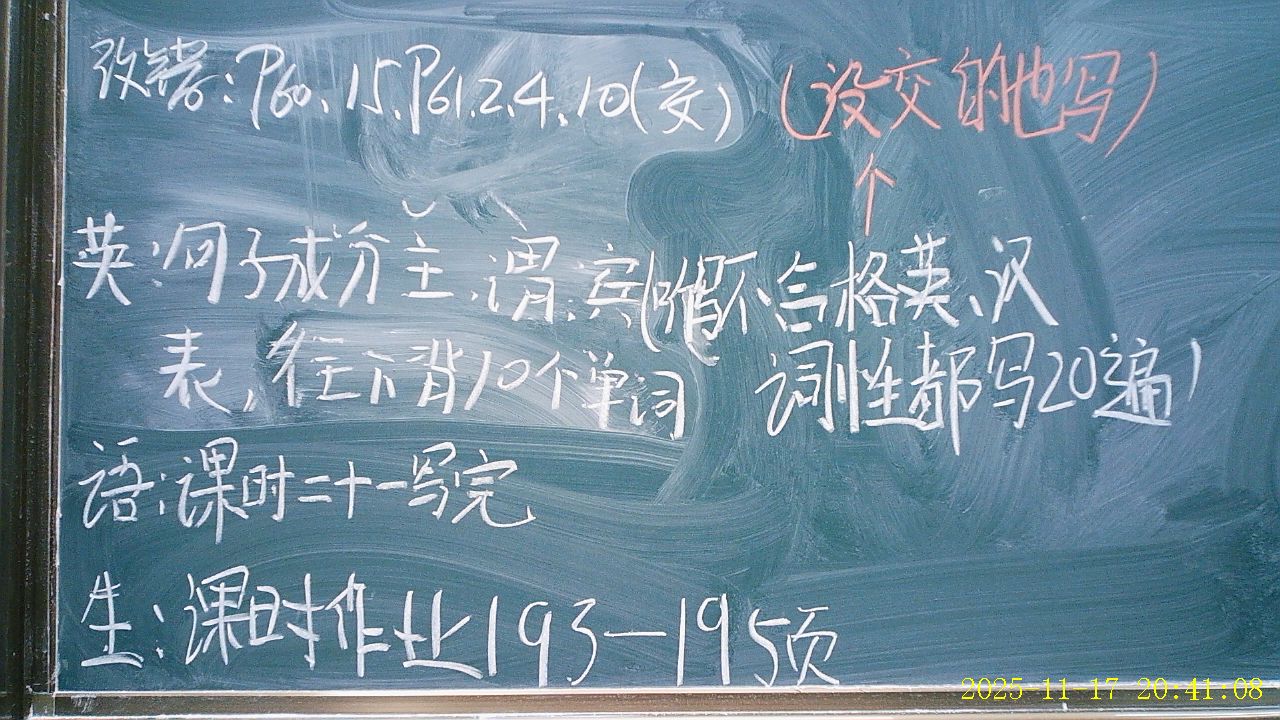 改错:P60、15、P61.2、4、10(交) (没交的也写)
个
英:句子成分主、谓、宾(听写不合格英、汉
表,往下背10个单词 词性都写20遍)
语:课时二十一写完
生:课时作业193—195页
2025-11-17 20:41:08